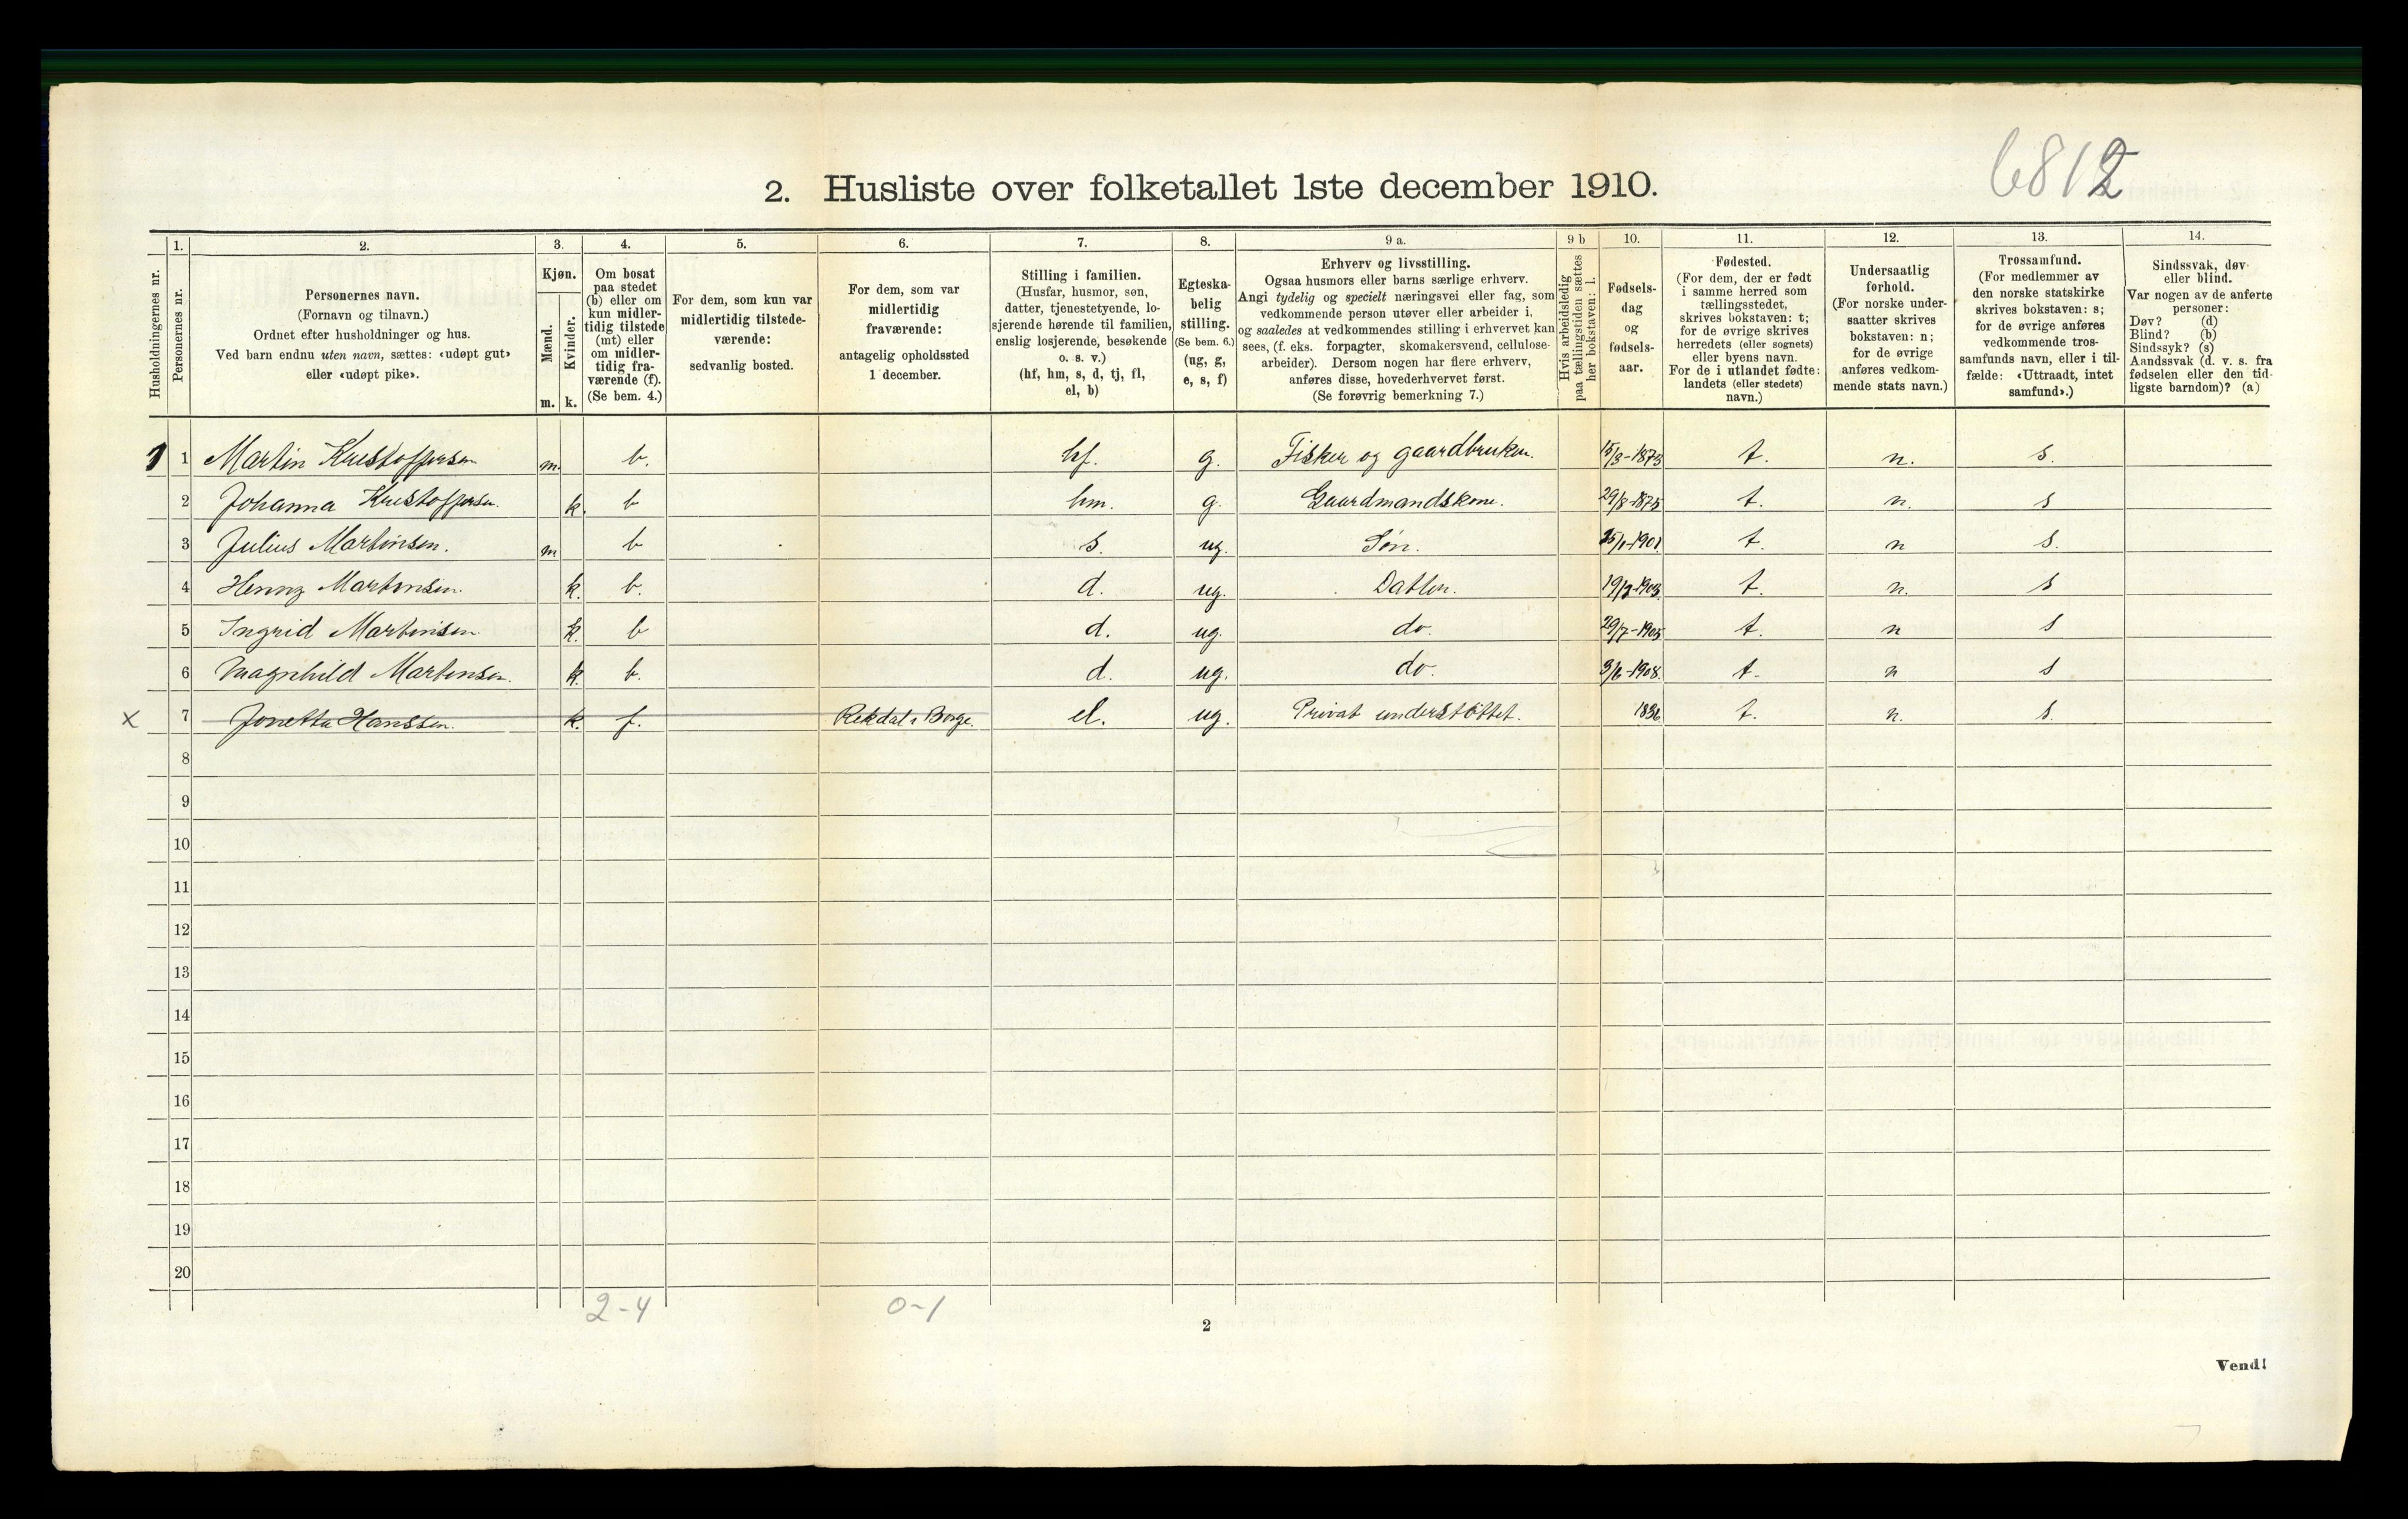 6812
2. Husliste over folketallet 1ste december 1910.
1. 2. 3. 4. 5. 6. 7. 8. 9 a. 9 b 10. 11. 12. 13. 14.
Husholdningernes nr.
Personernes nr.
Personernes navn.
(Fornavn og tilnavn.)
Ordnet efter husholdninger og hus.
Ved barn endnu uten navn, sættes: «udøpt gut»
eller «udøpt pike».
Kjøn.
Mænd.
Kvinder.
m. k.
Om bosat
paa stedet
(b) eller om
kun midler-
tidig tilstede
(mt) eller
om midler-
tidig fra-
værende (f).
(Se bem. 4.)
For dem, som kun var
midlertidig tilstede-
værende:
sedvanlig bosted.
For dem, som var
midlertidig
fraværende:
antagelig opholdssted
1 december.
Stilling i familien.
(Husfar, husmor, søn,
datter, tjenestetyende, lo-
sjerende hørende til familien,
enslig losjerende, besøkende
o. s. v.)
(hf, hm, s, d, tj, fl,
el, b)
Egteska-
belig
stilling.
(Se bem. 6.)
(ug, g,
e, s, f)
Erhverv og livsstilling.
Ogsaa husmors eller barns særlige erhverv.
Angi tydelig og specielt næringsvei eller fag, som
vedkommende person utøver eller arbeider i,
og saaledes at vedkommendes stilling i erhvervet kan
sees, (f. eks. forpagter, skomakersvend, cellulose-
arbeider). Dersom nogen har flere erhverv,
anføres disse, hovederhvervet først.
(Se forøvrig bemerkning 7.)
Hvis arbeidsledig
paa tællingstiden sættes
her bokstaven: l.
Fødsels-
dag
og
fødsels-
aar.
Fødested.
(For dem, der er født
i samme herred som
tællingsstedet,
skrives bokstaven: t;
for de øvrige skrives
herredets (eller sognets)
eller byens navn.
For de i utlandet fødte:
landets (eller stedets)
navn.)
Undersaatlig
forhold.
(For norske under-
saatter skrives
bokstaven: n;
for de øvrige
anføres vedkom-
mende stats navn.)
Trossamfund.
(For medlemmer av
den norske statskirke
skrives bokstaven: s;
for de øvrige anføres
vedkommende tros-
samfunds navn, eller i til-
fælde: «Uttraadt, intet
samfund».)
Sindssvak, døv
eller blind.
Var nogen av de anførte
personer:
Døv? (d)
Blind? (b)
Sindssyk? (s)
Aandssvak (d. v. s. fra
fødselen eller den tid-
ligste barndom)? (a)
1 1 Martin Kristoffersen m. b. hf. g. Fisker og gaardbruker. 15/3-1873 t. n. s.
2 Johanna Kristoffersen. k. b hm. g. Gaardmandskone. 29/8-1875 t. n. s
3 Julius Martinsen. m b s. ug. Søn. t. n s.
4 Henny Martinsen. k. b. d. ug. Datter. t. n. s
5 Ingrid Martinsen. k. b d. ug. do. 29/7-1905 t. n s
6 Magnhild Martinsen. k. b. d. ug. do. 9/6-1908. t. n s
x 7 Jonetta Hanssen. k. f. Rekdal i Borge. el. ug. Privat understöttet. 1836 t. n. s.
8
9
10
11
12
13
14
15
16
17
18
19
20
2-4 0-1
2
Vend!